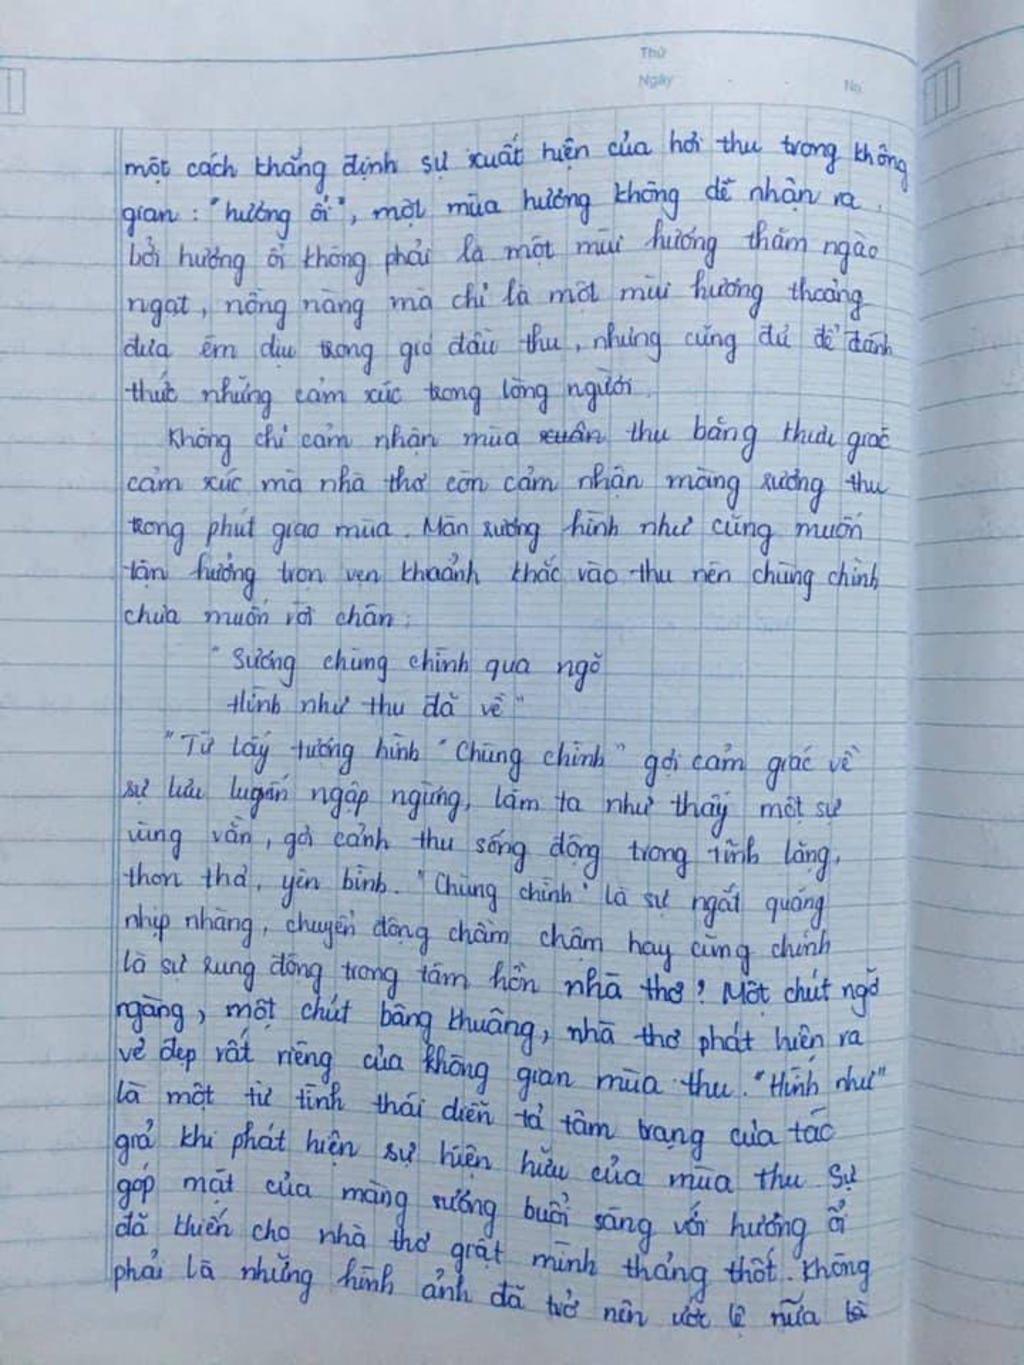 Thứ
Ngày - - No.
một cách khẳng định sự xuất hiện của hơi thu trong không
gian : "hương ổi", một mùa hương không dễ nhận ra.
bởi hương ổi không phải là một mùi hương thơm ngào
ngạt, nồng nàng mà chỉ là một mùi hương thoảng
đưa êm dịu trong gió đầu thu, nhưng cũng đủ để đánh
thức những cảm xúc trong lòng người.
Không chỉ cảm nhận mùa xuân thu bằng thứu giác
cảm xúc mà nhà thơ còn cảm nhận màng sương thu
trong phút giao mùa. Màn sương hình như cũng muốn
tận hưởng trọn vẹn khoảnh khắc vào thu nên chùng chình
chưa muốn rời chân:
"Sương chùng chình qua ngõ
Hình như thu đã về"
"Từ láy tượng hình "Chùng chình" gợi cảm giác về
sự lưu luyến ngập ngừng, làm ta như thấy một sự
vùng vằn, gợi cảnh thu sống động trong tĩnh lặng,
thon thả, yên bình. "Chùng chình" là sự ngắt quãng
nhịp nhàng, chuyển động chầm chậm hay cũng chính
là sự rung động trong tâm hồn nhà thơ? Một chút ngỡ
ngàng, một chút bâng khuâng, nhà thơ phát hiện ra
vẻ đẹp rất riêng của không gian mùa thu. "Hình như"
là một từ tình thái diễn tả tâm trạng của tác
giả khi phát hiện sự hiện hữu của mùa thu Sự
góp mặt của màng sương buổi sáng với hương ổi
đã khiến cho nhà thơ giật mình thảng thốt. Không
phải là những hình ảnh đã trở nên ước lệ nữa là